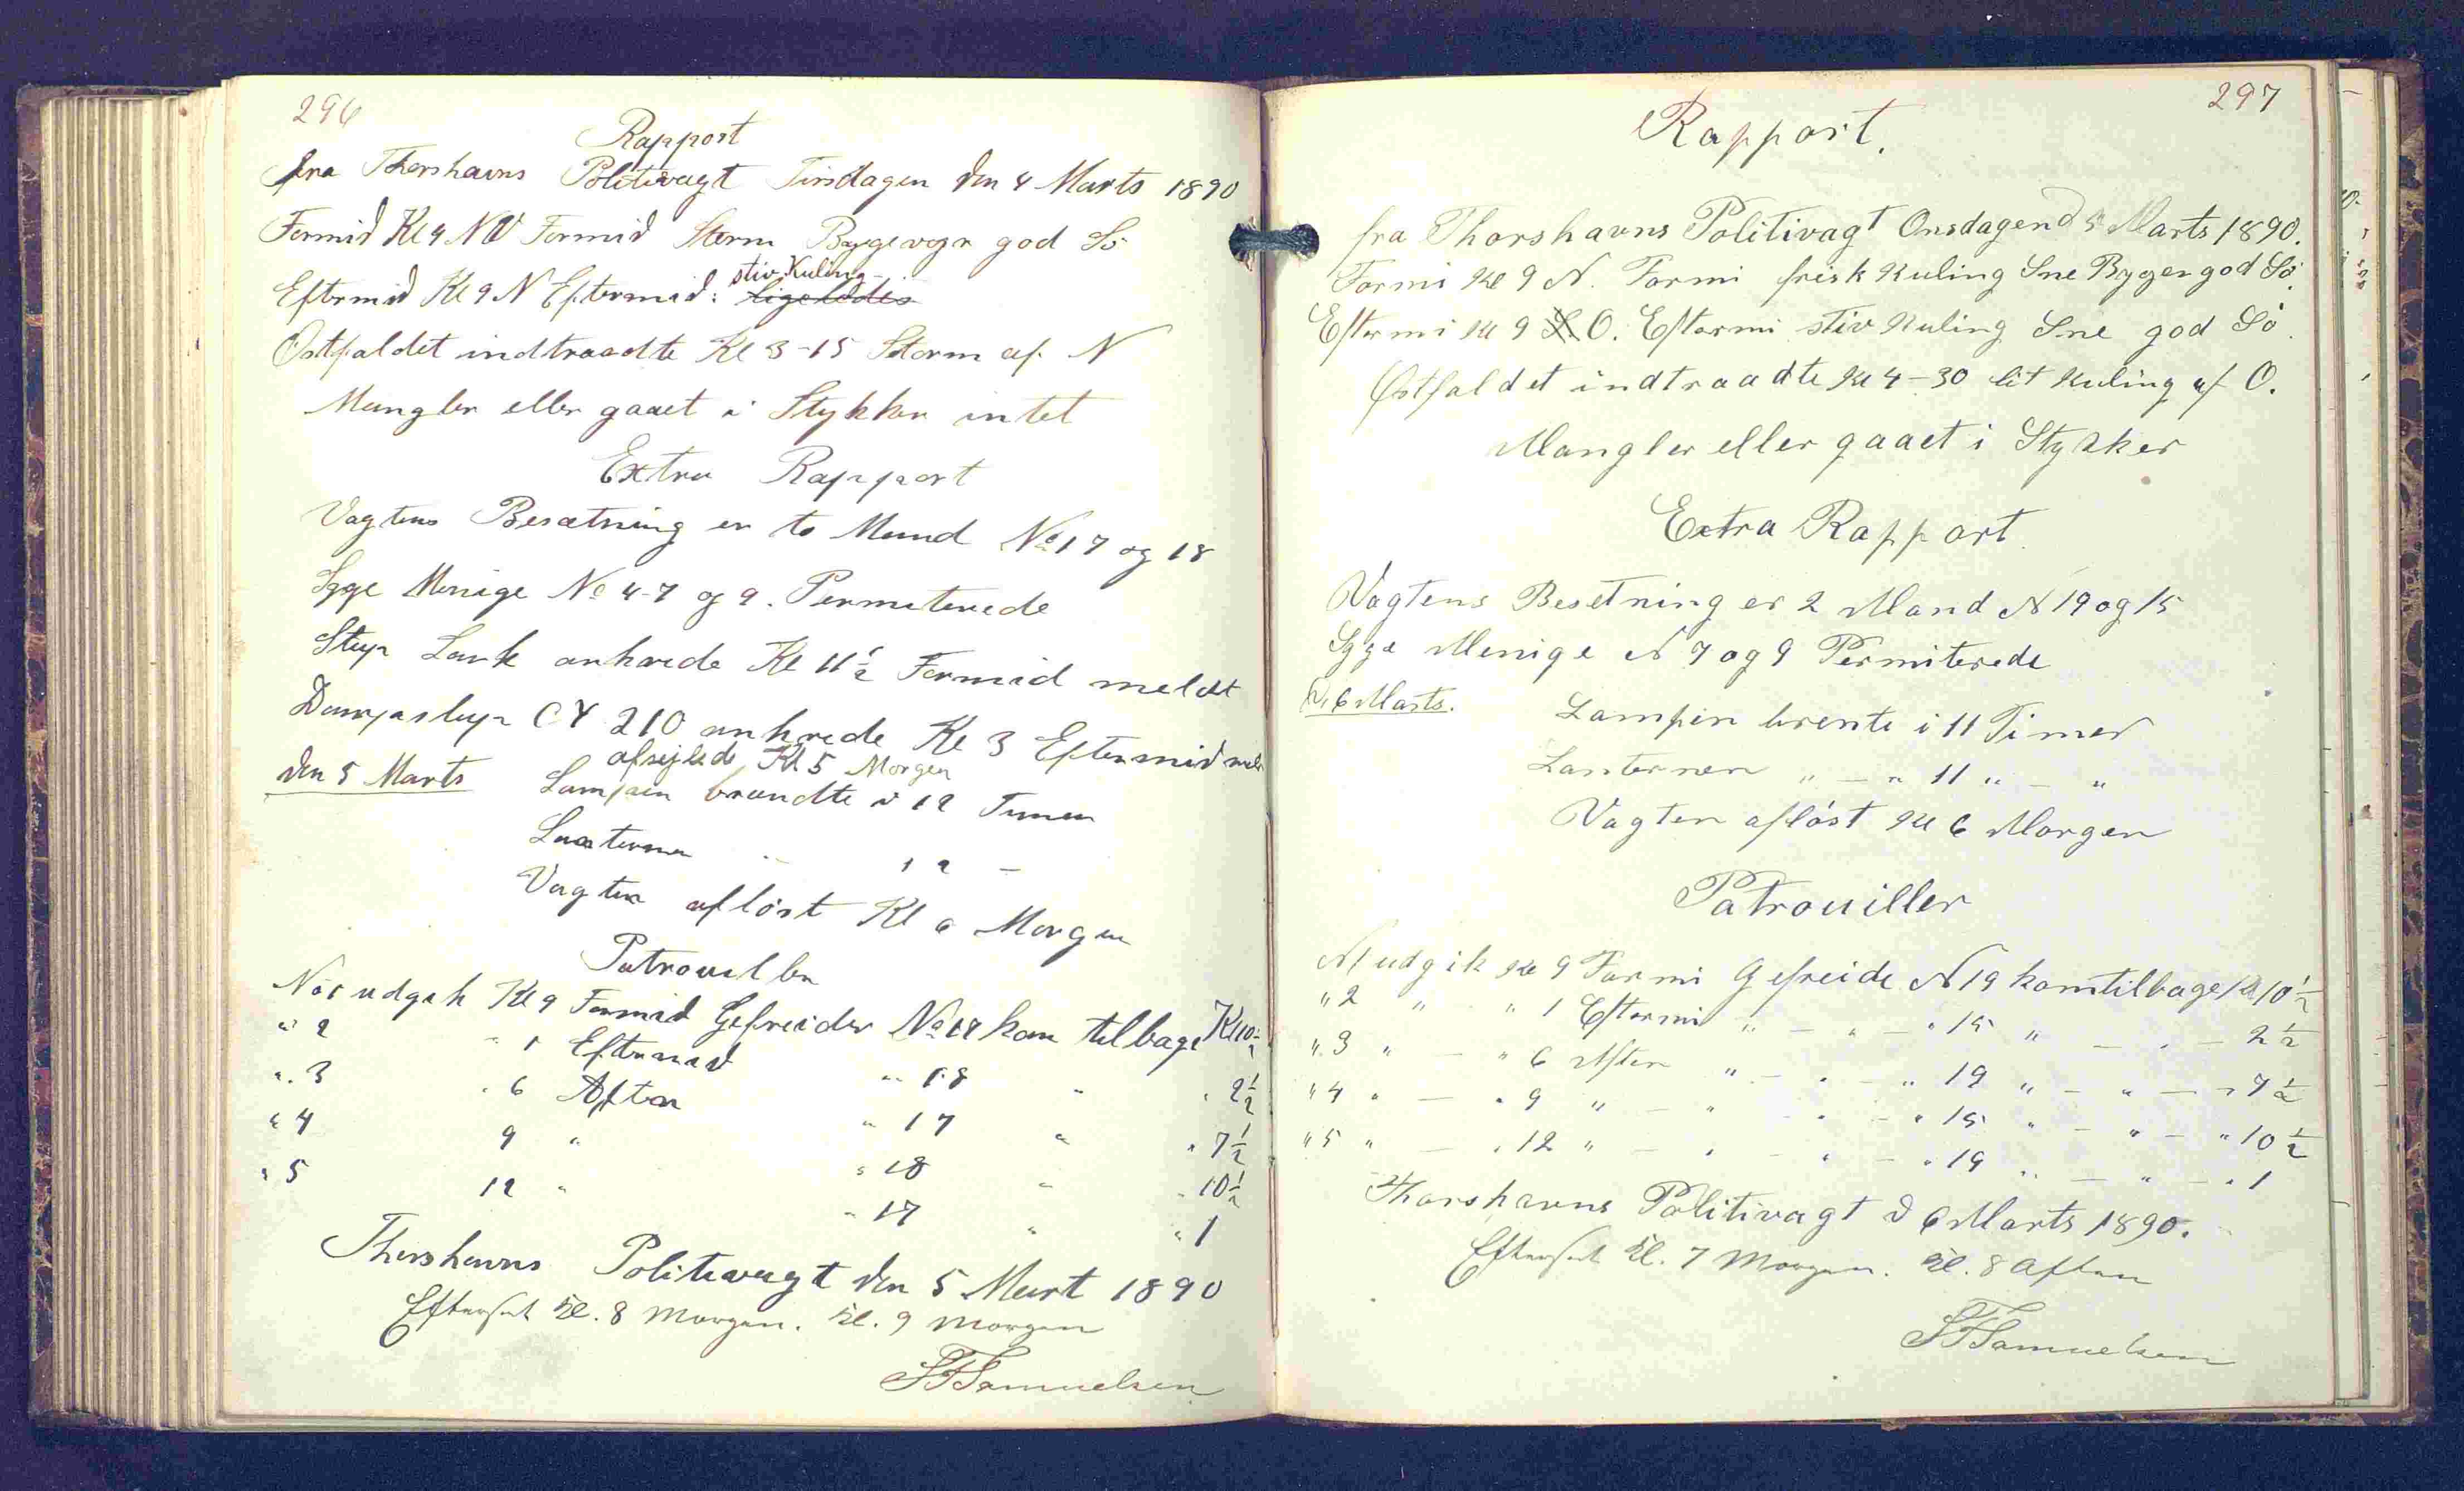 296
Rapport
fra Thorshavns Politivagt Tirsdagen den 4 Marts 1890
Formid Kl 9 NV Formid Storm Bygevejr god Sö
stiv Kuling
Eftermid Kl 9 N Eftermid: ligeledes
Östfaldet indtraadte Kl 3-15 Storm af N
Mangler eller gaaet i Stykker intet
Extra Rapport
Vagtens Besætning er to Mand No 17 og 18
Syge Menige No 4-7 og 9. Permiterede
Slup Lark ankrede Kl 11½ Formid meldt
Dampslup CY 210 ankrede Kl 3 Eftermid
afsejlede Kl 5 Morgen
den 5 Marts Lampen brændte i 12 Timer
Lanternen - 12 -
Vagten aflöst Kl 6 Morgen
Patrouiller
No 1 udgik Kl 9 Formid Gefreider No 17 kom tilbage Kl 10½
" 2 " 1 Eftermid " 18 " " 2½
" 3 " 6 Aften " 17 " " 7½
" 4 9 " " 18 " " 10½
" 5 12 " " 17 " " 1
Thorshavns Politivagt den 5 Mart 1890
Efterset Kl. 8 Morgen. Kl. 9 Morgen
Samuelsen
297
Rapport.
fra Thorshavns Politivagt Onsdagen d 5 Marts 1890.
Formi Kl 9 N. Formi frisk Kuling Sne Byger god Sö.
Eftermi Kl 9 O. Eftermi stiv Kuling Sne god Sö.
Østfaldet indtraadte Kl 4-30 let Kuling af O.
Mangler eller gaaet i Stykker
Extra Rapport.
Vagtens Besetning er 2 Mand N 19 og 15
Syge Menige N 7 og 9 Permiterede
d. 6 Marts. Lampen brente i 11 Timer
Lanternen " - " 11 " - "
Vagten aflöst Kl 6 Morgen
Patrouiller
N 1 udgik Kl 9 Formi Gefreide N 19 kom tilbage Kl 10½
" 2 " " 1 Eftermi " - " - " 15 " - " - 2½
" 3 " - " 6 Aften " - " - " 19 " - " - " 7½
" 4 " - " 9 " - " - " - " 15 " - " - " 10½
" 5 " - " 12 " - " - " - " 19 " - " - " 1
Thorshavns Politivagt d 6 Marts 1890.
Efterset Kl. 7 Morgen. Kl. 8 Aften
Samuelsen